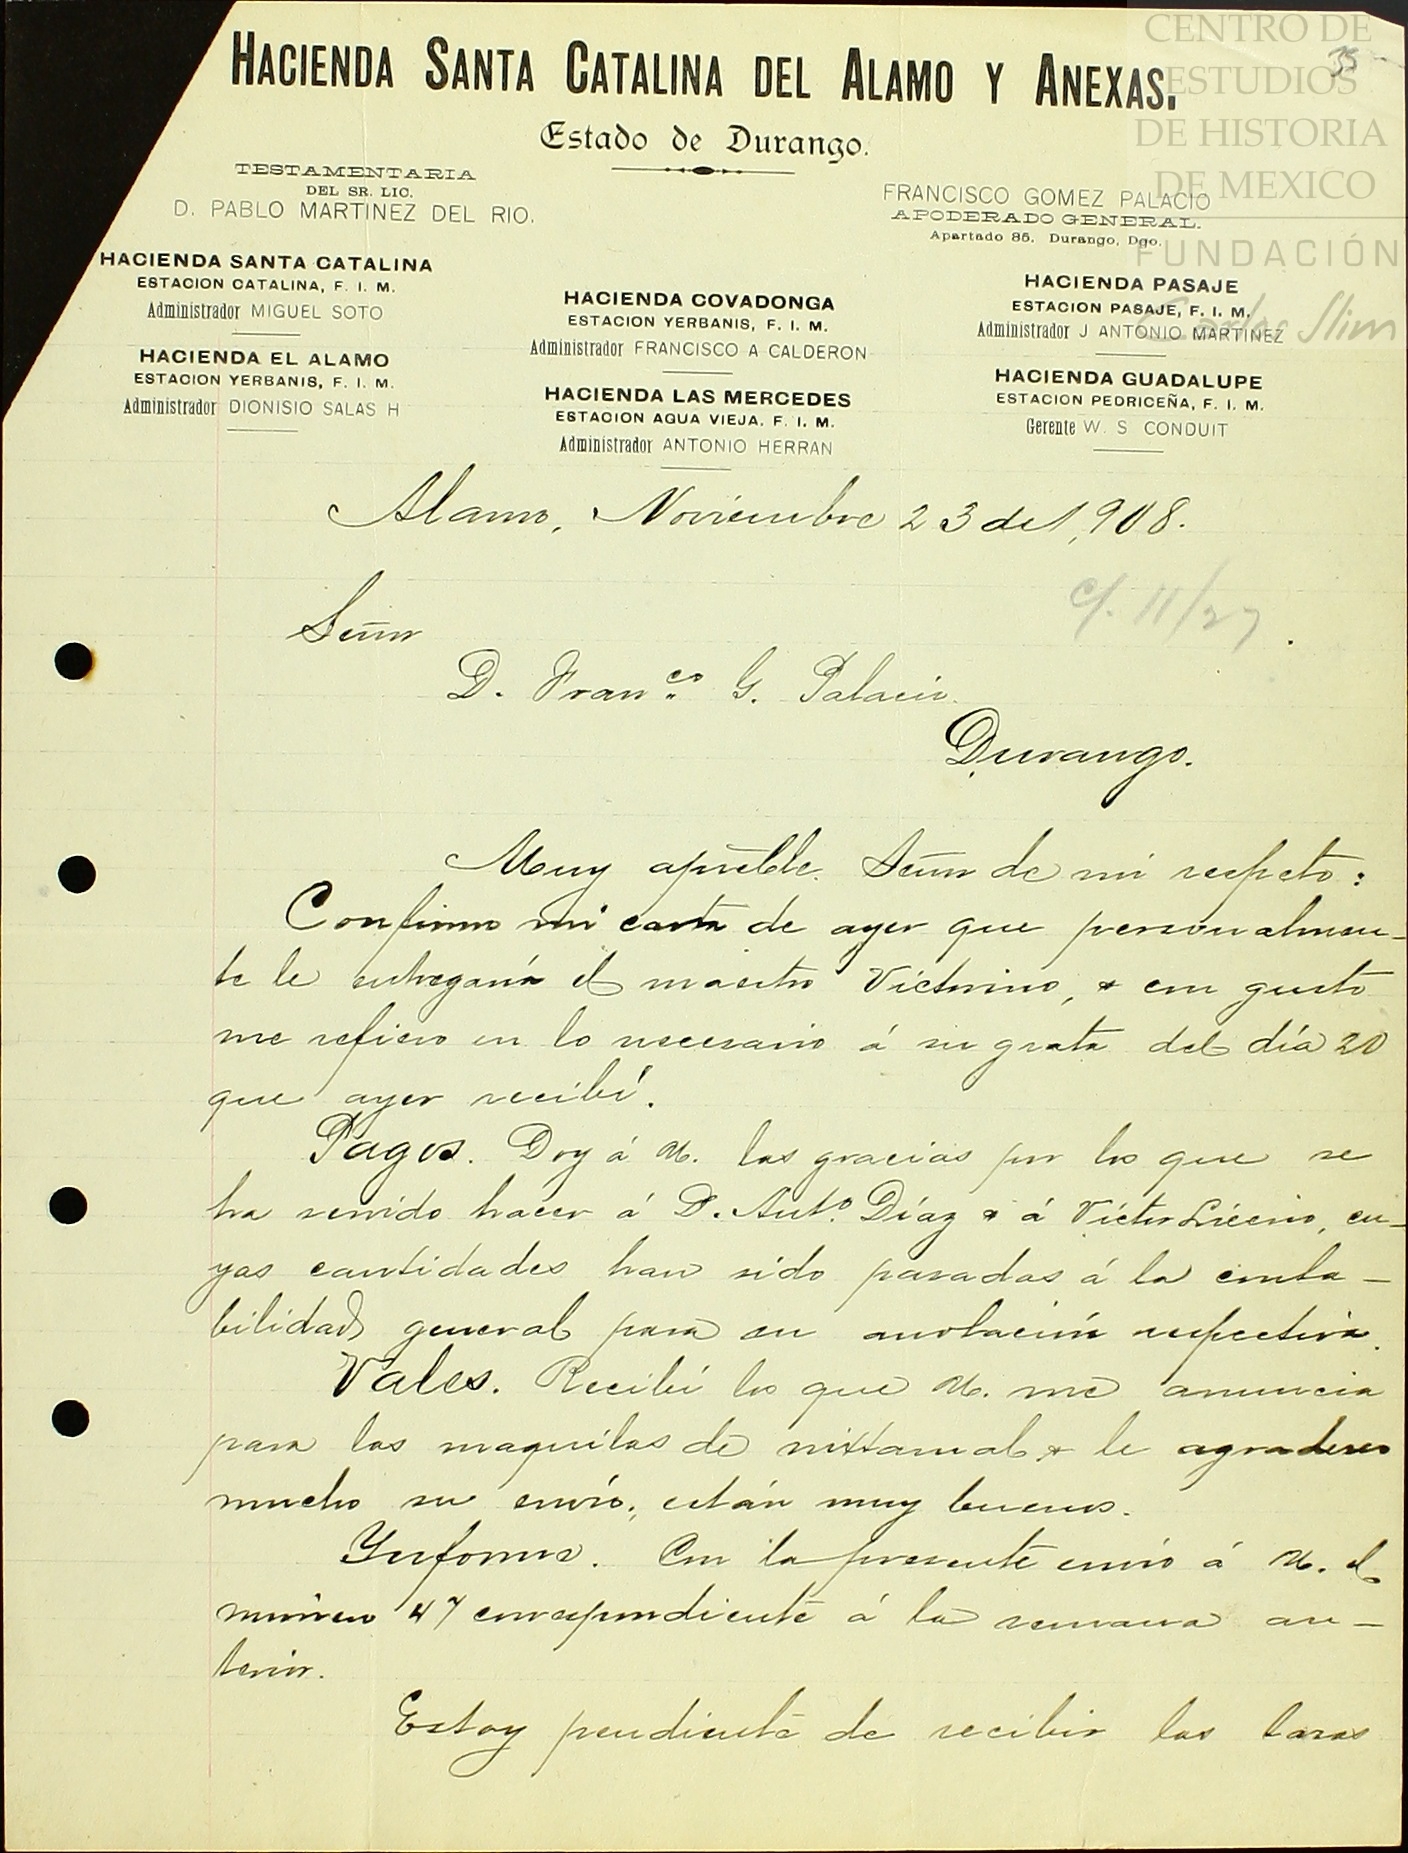 HACIENDA SANTA CATALINA DEL ALAMO Y ANEXAS.
Estado de Durango.
TESTAMENTARIA
DEL SR. LIC.
D. PABLO MARTINEZ DEL RIO.
FRANCISCO GOMEZ PALACIO
APODERADO GENERAL.
Apartado 85. Durango, Dgo.
HACIENDA SANTA CATALINA
ESTACION CATALINA, F. I. M.
Administrador MIGUEL SOTO
HACIENDA EL ALAMO
ESTACION YERBANIS, F. I. M.
Administrador DIONISIO SALAS H
HACIENDA COVADONGA
ESTACION YERBANIS, F. I. M.
Administrador FRANCISCO A CALDERON
HACIENDA LAS MERCEDES
ESTACION AGUA VIEJA. F. I. M.
Administrador ANTONIO HERRAN
HACIENDA PASAJE
ESTACION PASAJE, F. I. M.
Administrador J ANTONIO MARTINEZ
HACIENDA GUADALUPE
ESTACION PEDRICEÑA, F. I. M.
Gerente W. S CONDUIT
CENTRO DE
ESTUDIOS
DE HISTORIA
DE MEXICO
FUNDACIÓN
Carlos Slim
35
Alamo, Noviembre 23 de 1,908.
c/. 11/27.
Señor
D. Franco. G. Palacio.
Durango.
Muy apreble. Señor de mi respeto:
Confirmo mi carta de ayer que personalmen-
te le entregará el maestro Victorino, & con gusto
me refiero en lo necesario á su grata del día 20
que ayer recibí.
Pagos. Doy á U. las gracias por los que se
ha servido hacer á D. Anto. Díaz & á Victor, cu-
yas cantidades han sido pasadas á la conta-
bilidad general para su anotación respectiva.
Vales. Recibí los que U. me anuncia
para las maquilas de nixtamal & le agradesco
mucho su envío; están muy buenos.
Ynforme. Con la presente envío á U. el
número 47 correspondiente á la semana an-
terior.
Estoy pendiente de recibir las